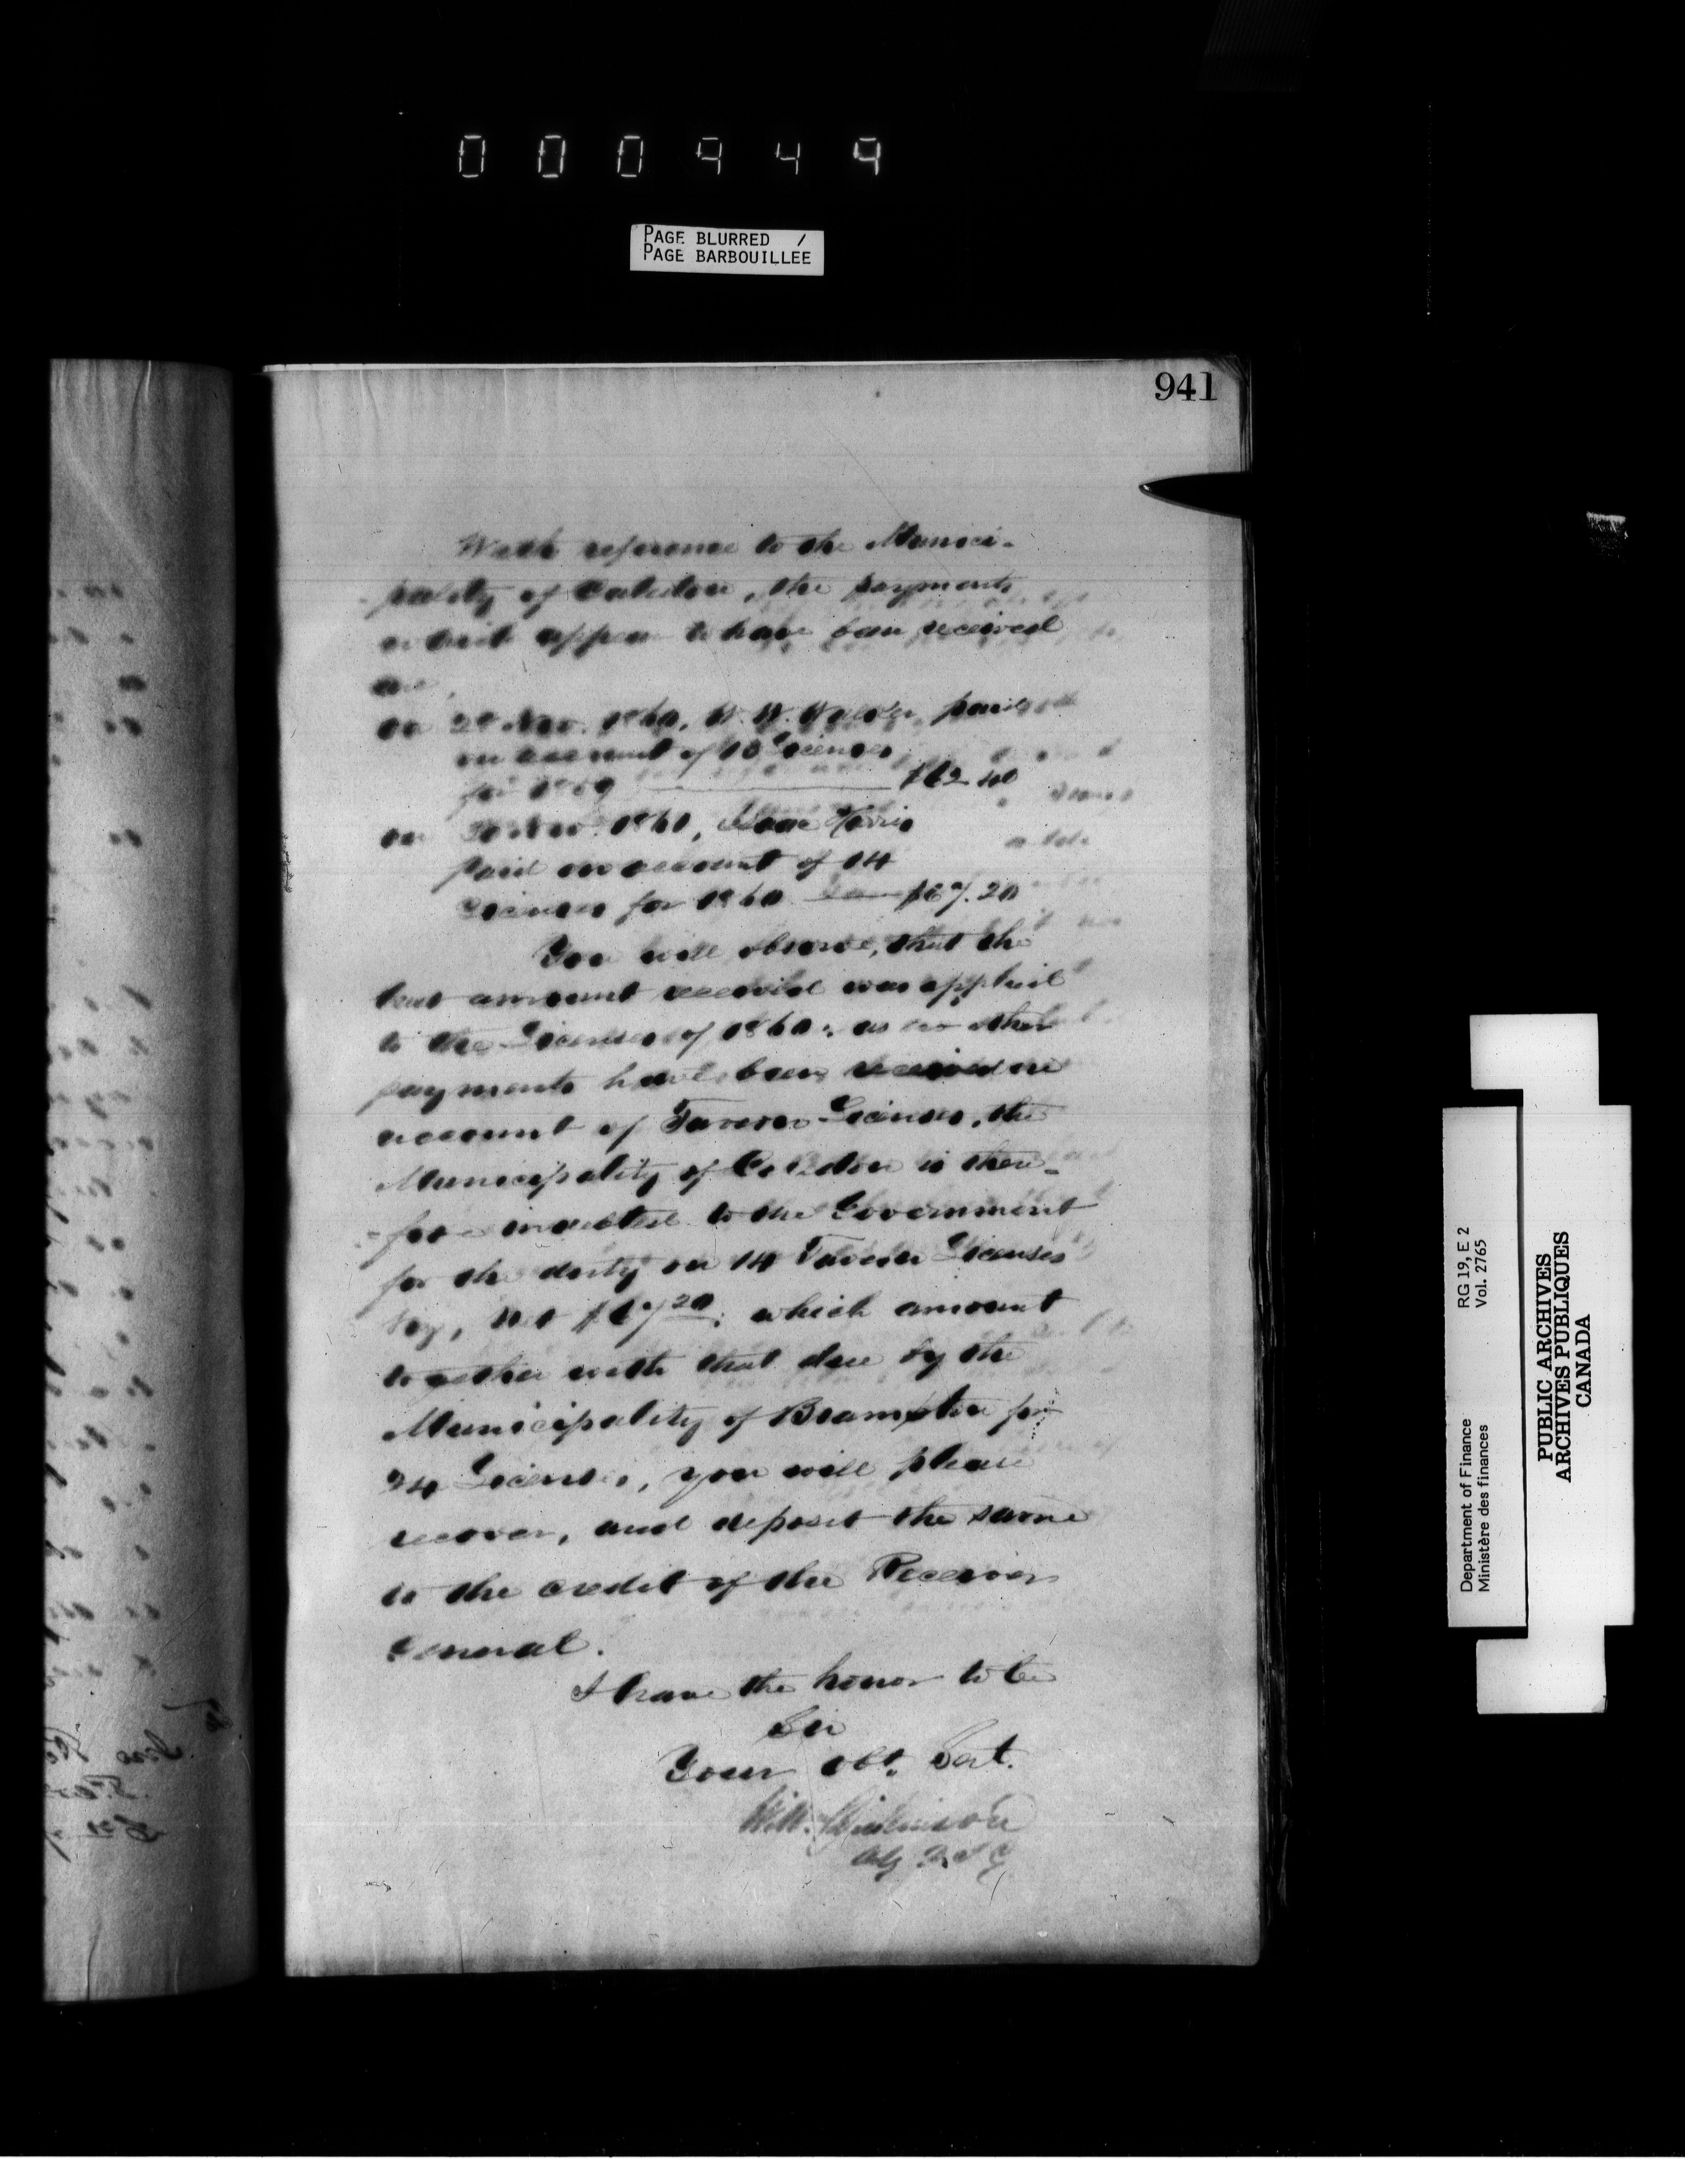 000949
PAGE BLURRED /
PAGE BARBOUILLEE
941
With reference to the Munici-
pality of Caledon, the payments
which appear to have been received
are,
on Nov. 1860, W. W. paid
on account of 13 Licenses
for 18 $62.40
on Nov. 1861, Isaac Harris
paid on account of 14
Licenses for 1860 $67.20
You will observe, that the
last amount received was applied
to the Licenses of 1860; as no other
payments have been received on
account of Tavern Licenses, the
Municipality of Caledon is there-
-fore indebted to the Government
for the duty on 14 Tavern Licenses
Viz, $67.20; which amount
together with that due by the
Municipality of Brampton for
24 Licenses, you will please
recover, and deposit the same
to the credit of the Receiver
General.
I have the honor to be
Sir
Your Obt. Sert.
Wm. Dickinson
RG 19, E 2
Vol. 2765
Department of Finance
Ministère des finances
PUBLIC ARCHIVES
ARCHIVES PUBLIQUES
CANADA